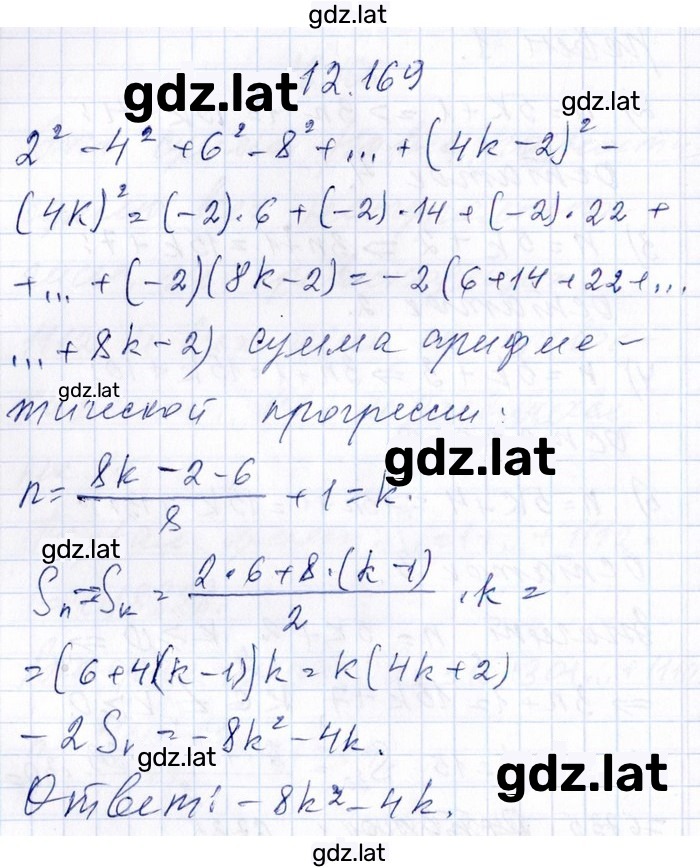 gdz.lat
12.169
gdz.lat
gdz.lat
2² - 4² + 6² - 8² + ... + (4k - 2)² -
(4k)² = (-2)·6 + (-2)·14 + (-2)·22 +
+ ... + (-2)(8k - 2) = -2(6 + 14 + 22 + ...
... + 8k - 2) сумма арифме -
gdz.lat
тической прогрессии:
gdz.lat
n = \frac{8k - 2 - 6}{8} + 1 = k.
gdz.lat
Sₙ = Sₖ = \frac{2·6 + 8·(k - 1)}{2} · k =
= (6 + 4(k - 1))k = k(4k + 2)
- 2Sₖ = -8k² - 4k.
gdz.lat
gdz.lat
Ответ: -8k² - 4k.
gdz.lat